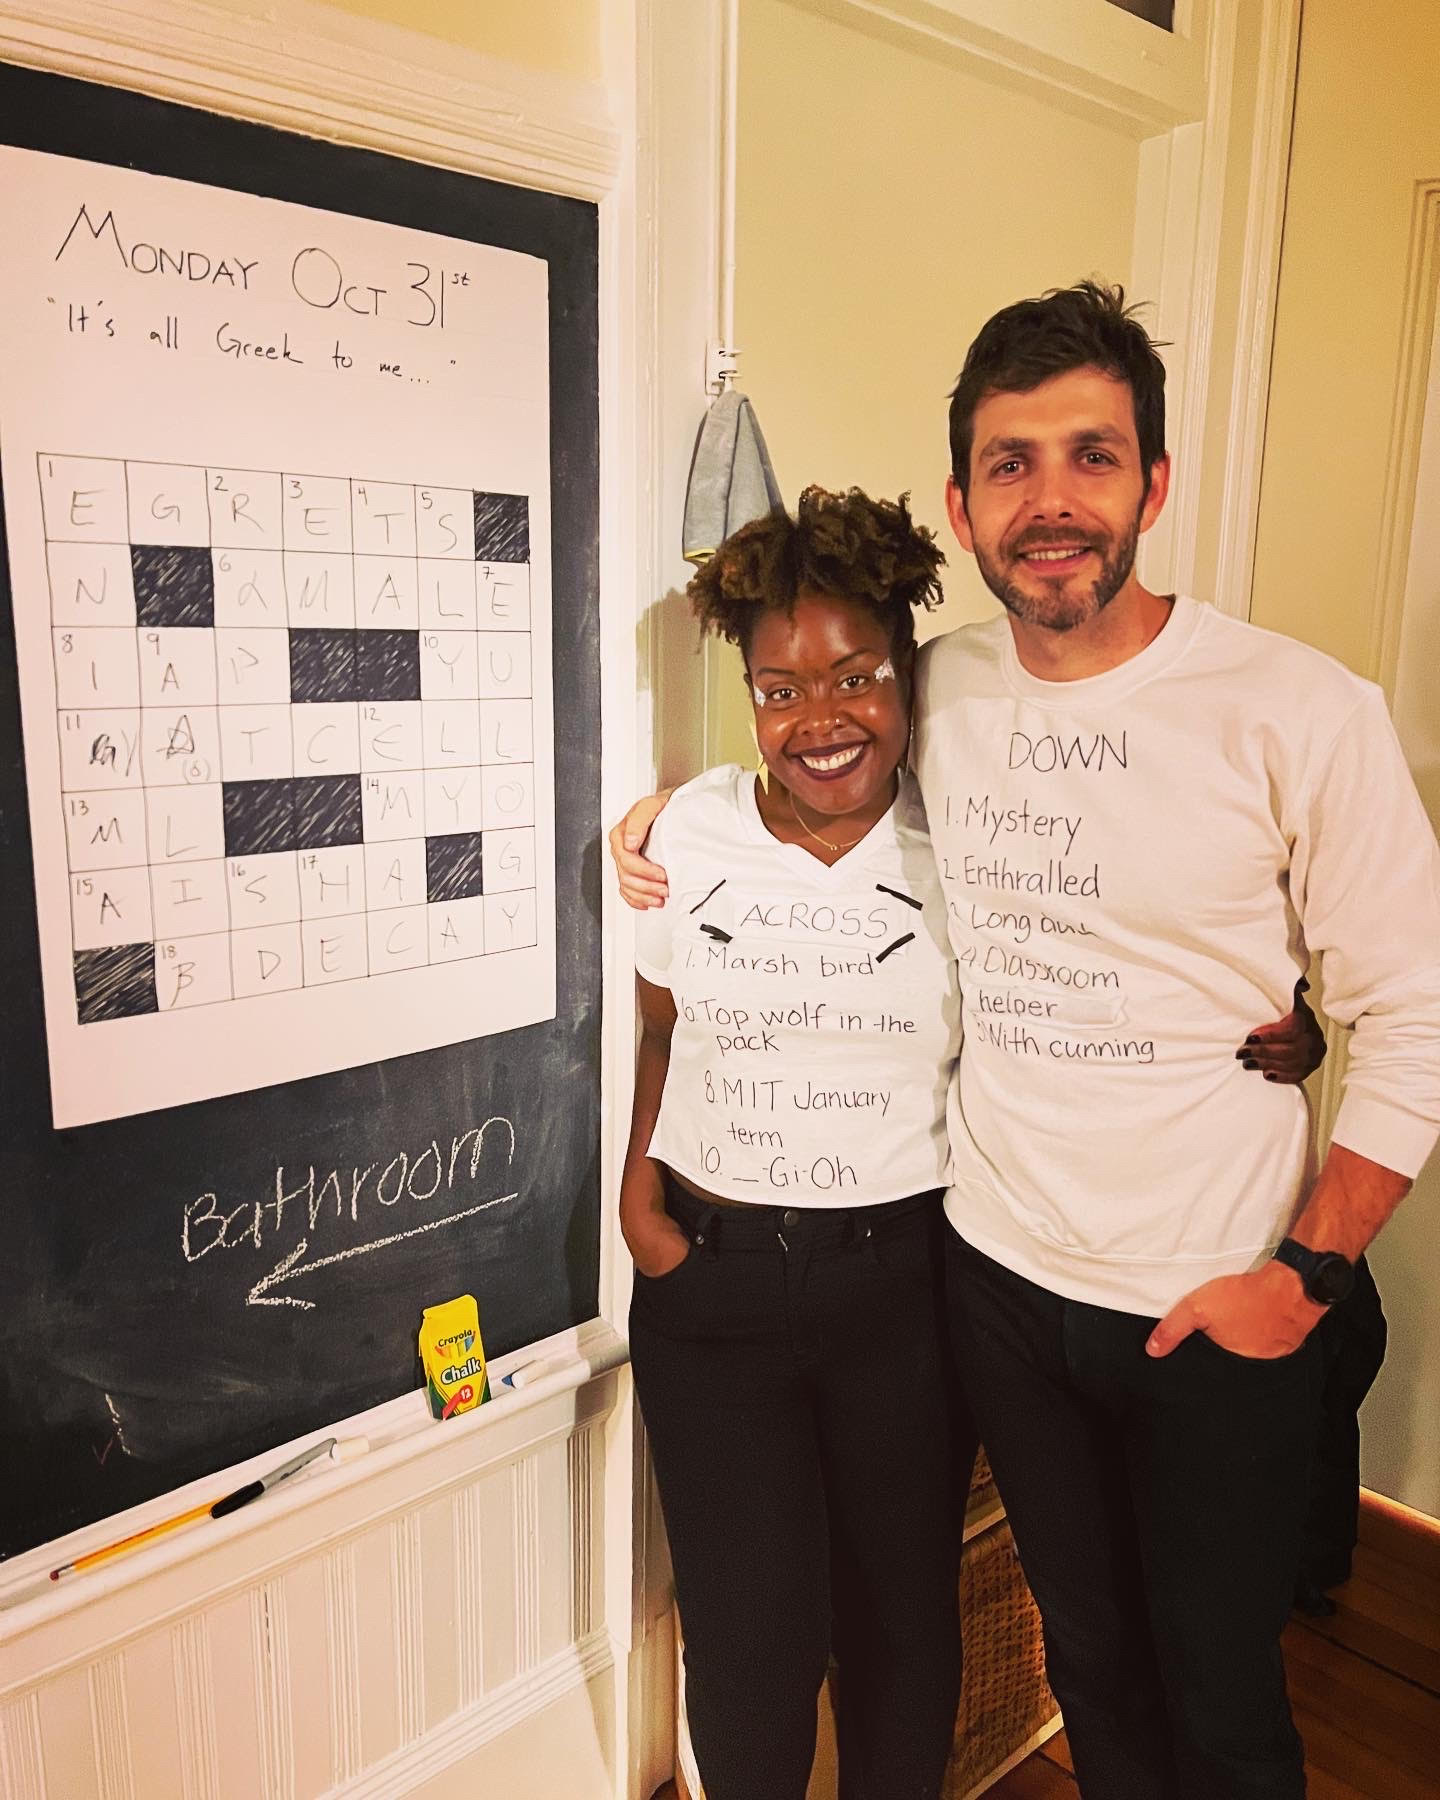 MONDAY OCT 31st
"It's all Greek to me..."
1 E G 2 R 3 E 4 T 5 S
N 6 α M A L 7 E
8 I 9 A P 10 Y U
11 T C 12 E L L
13 M L 14 M Y O
15 A I 16 S 17 H A G
18 β D E C A Y
Bathroom
Crayola
Chalk
12
ACROSS
1. Marsh bird
6. Top wolf in the
pack
8. MIT January
term
10. __-Gi-Oh
DOWN
1. Mystery
2. Enthralled
Long
4. Classroom
helper
With cunning